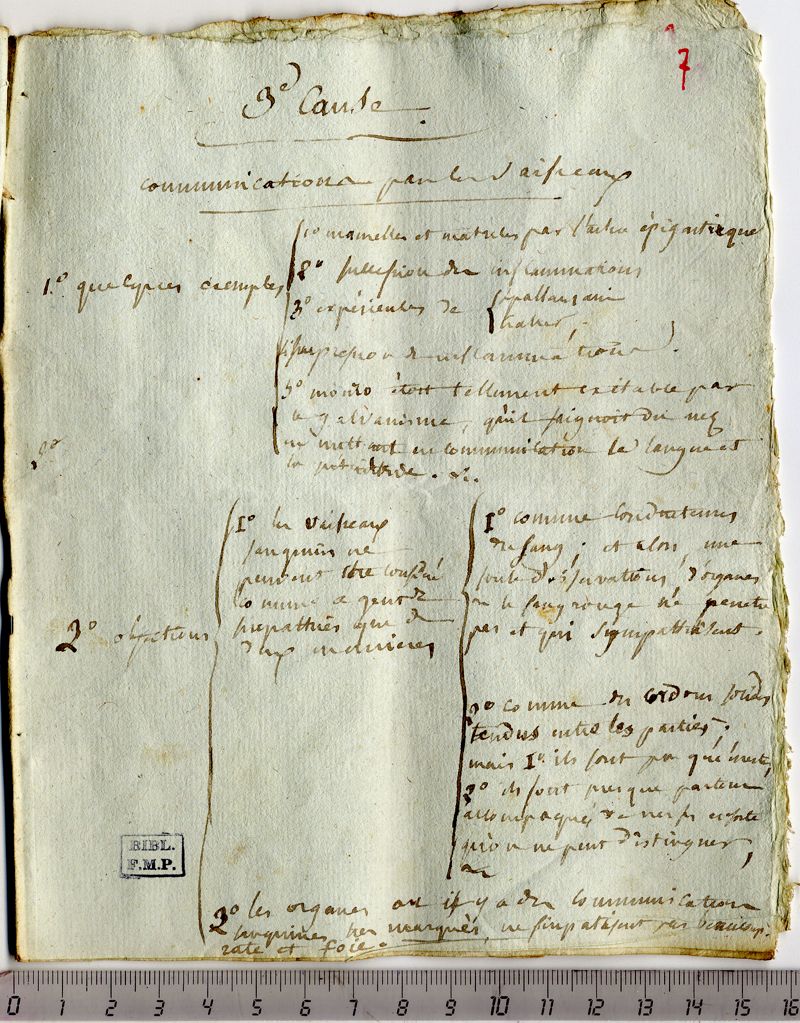 7
3º Cause
communications par les vaisseaux
1.º quelques exemples
1º mamelles et matrices par l'artere épigastrique
2º succession des inflammations
3º expériences de
spallanzani
haller,
suppression des inflammations.
5º étoit tellement exitable par
le galvanisme, qu'il saignoit du nez
en mettant en communication la langue et
la &.
2º
2º objections
1º les vaisseaux
sanguins ne
peuvent être consideré
comme agent de
simpathies que de
deux manieres
1º comme conducteurs
du sang; et alors, une
foule d'observations, d'organes
ou le sang rouge ne penetre
pas et qui sympathisent.
2º comme des cordons solides
tendus entre les parties;
mais 1º ils sont peu
2º ils sont presque partout
accompagnés de nerfs ensorte
qu'on ne peut distinguer,
3º les organes ou il y a des communications
sanguines tres marqués, ne simpatisent pas beaucoup.
rate et foie.
BIBL.
F.M.P.
0 1 2 3 4 5 6 7 8 9 10 11 12 13 14 15 16